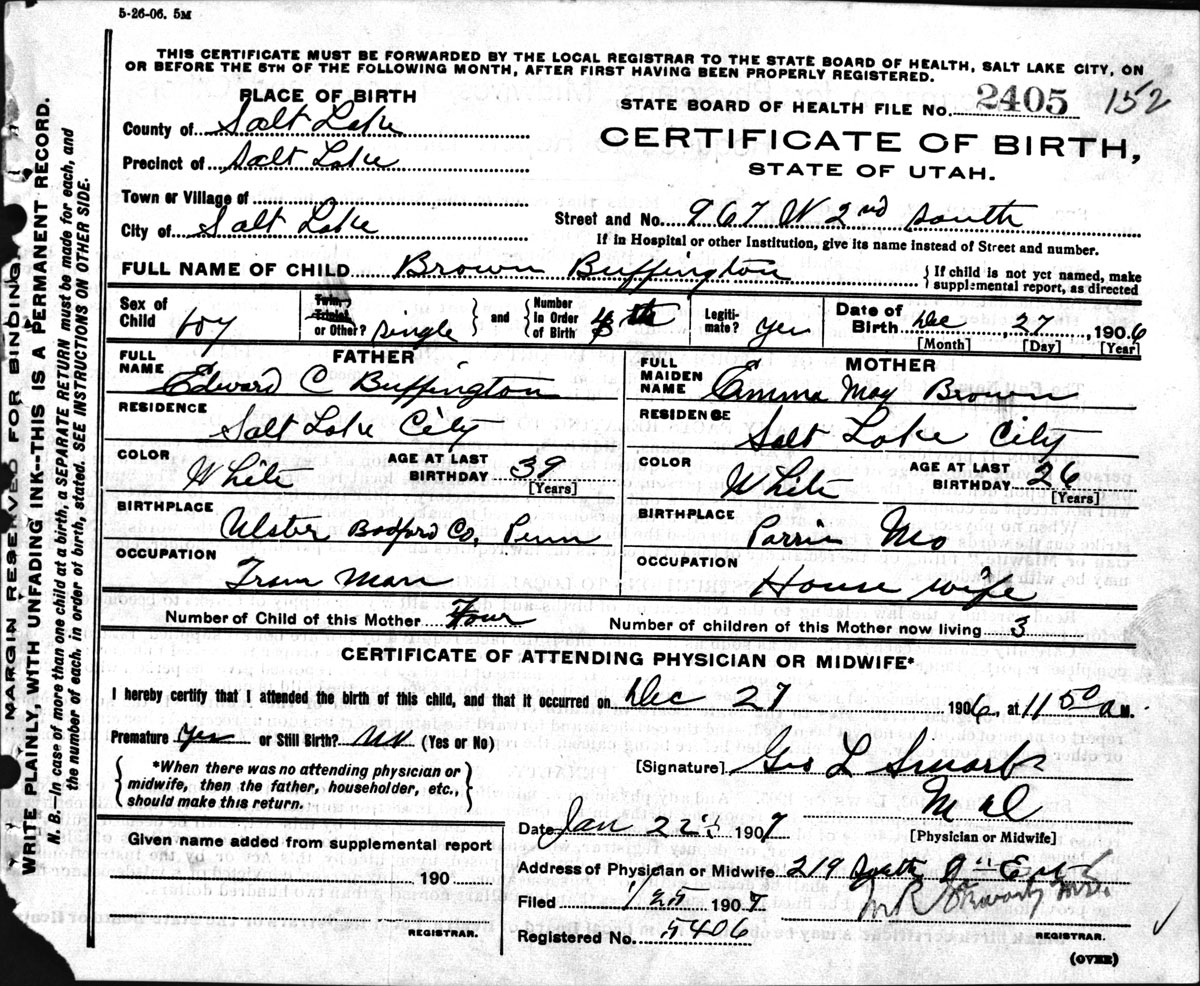 5-26-06. 5M
THIS CERTIFICATE MUST BE FORWARDED BY THE LOCAL REGISTRAR TO THE STATE BOARD OF HEALTH, SALT LAKE CITY, ON
OR BEFORE THE 5TH OF THE FOLLOWING MONTH, AFTER FIRST HAVING BEEN PROPERLY REGISTERED.
PLACE OF BIRTH
STATE BOARD OF HEALTH FILE No. 2405 152
County of Salt Lake
CERTIFICATE OF BIRTH,
Precinct of Salt Lake
STATE OF UTAH.
Town or Village of
Street and No. 967 W 2nd South
City of Salt Lake
If in Hospital or other Institution, give its name instead of Street and number.
FULL NAME OF CHILD Brown Buffington
{ If child is not yet named, make
supplemental report, as directed
Sex of Child boy
Twin, Triplet or Other? single } and { Number in Order of Birth 4th
Legitimate? yes
Date of Birth Dec 27, 1906
[Month] [Day] [Year]
FATHER
FULL NAME Edward C Buffington
RESIDENCE Salt Lake City
COLOR White AGE AT LAST BIRTHDAY 39
[Years]
BIRTHPLACE Ulster Bradford Co, Penn
OCCUPATION Train Man
MOTHER
FULL MAIDEN NAME Emma May Brown
RESIDENCE Salt Lake City
COLOR White AGE AT LAST BIRTHDAY 26
[Years]
BIRTHPLACE Perrin Mo
OCCUPATION House wife
Number of Child of this Mother Four Number of children of this Mother now living 3
CERTIFICATE OF ATTENDING PHYSICIAN OR MIDWIFE*
I hereby certify that I attended the birth of this child, and that it occurred on Dec 27 1906, at 11 50 a M.
Premature Yes or Still Birth? No (Yes or No)
*When there was no attending physician or
midwife, then the father, householder, etc.,
should make this return.
[Signature] Geo L
M d
[Physician or Midwife]
Date Jan 22 1907
Address of Physician or Midwife 219 South 9th East
Filed 1907
Registered No. 5406
REGISTRAR.
(OVER)
Given name added from supplemental report
190
REGISTRAR.
MARGIN RESERVED FOR BINDING
WRITE PLAINLY, WITH UNFADING INK—THIS IS A PERMANENT RECORD.
N. B. In case of more than one child at a birth, a SEPARATE RETURN must be made for each, and
the number of each, in order of birth, stated. SEE INSTRUCTIONS ON OTHER SIDE.